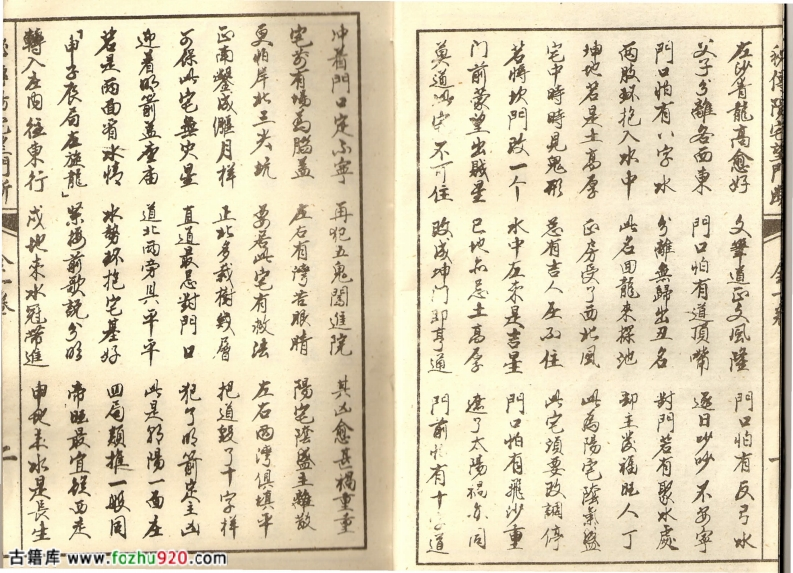 左沙青龍高愈好 文筆道正文風隆 門口怕有反弓水
父子分離各西東 門口怕有道頂幣 逐日吵吵不安寧
門口怕有八字水 分離無歸出丑名 對門若有聚水處
兩肢環抱入水中 此名回龍來探池 卻主發福旺人丁
坤地若是土高厚 正房受了西北風 此為陽宅陰氣盛
宅中時時見鬼形 總有吉人在不住 此宅須要改調停
若將坎門改一个 水中反來是吉星 門口怕有飛沙重
門前蒙望出賊星 巳地亦忌土高厚 遮了太陽禍亦同
莫道此宅不可住 改成坤門即亨通 門前怕有十道
一
沖着門口定不寧 再犯五鬼闖進院 其凶愈甚禍重重
宅前有塲為腦蓋 左右有灣是眼睛 陽宅陰盛主離散
更怕岸北三尖坑 要若此宅有救法 左右兩灣俱填平
正南鑿成偃月樣 正北多栽樹幾層 把道毀了十字樣
可保此宅無災星 直道最忌對門口 犯了明箭定主凶
迎着明箭蓋座庙 道北兩旁具平平 此是邪陽一面在
若是两面有水情 水勢環抱宅基好 四局類推一般同
「申子辰局左旋龍」 緊接前歌説分明 帝旺最宜經西走
轉入左向往東行 戍地來水冠帶進 申地来水是長生
二
古籍库 www.fozhu920.com